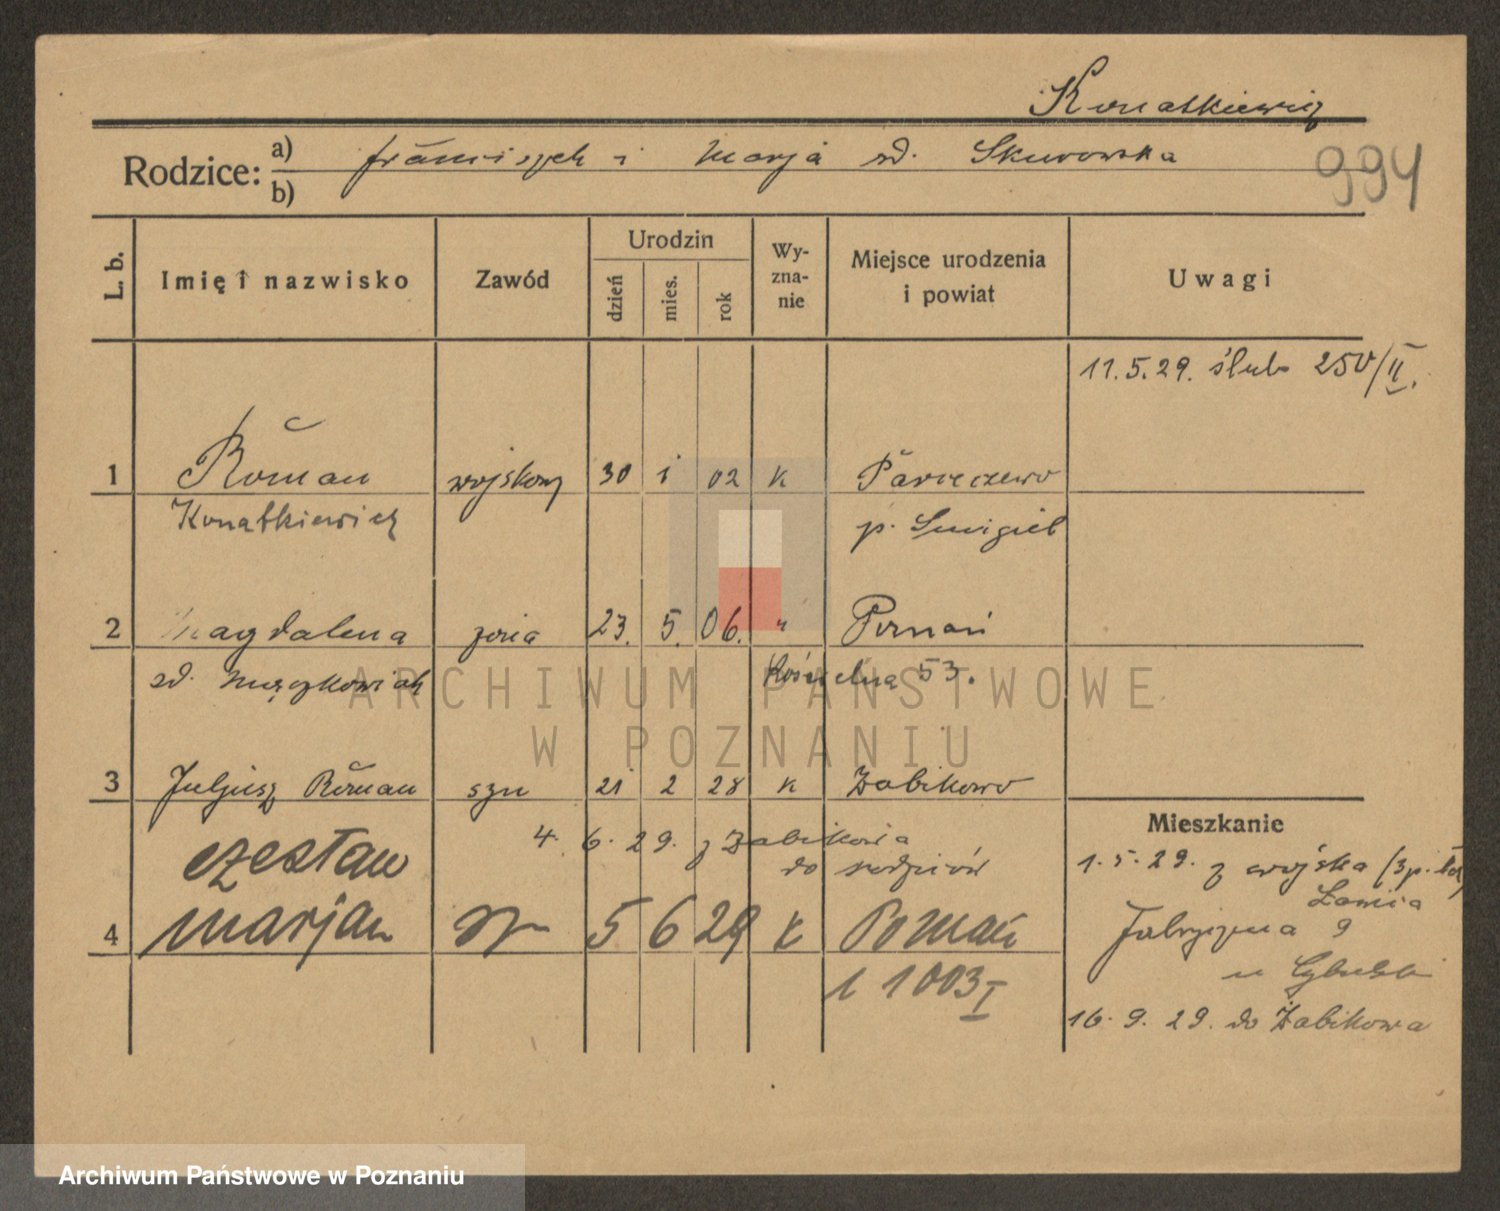 Konatkiewicz
Rodzice: a) Franciszek i Marja zd. Skurowska
b)
994
L. b. Imię i nazwisko Zawód Urodzin dzień mies. rok Wyznanie Miejsce urodzenia i powiat Uwagi
11.5.29. ślub 250/II.
1 Roman wojskowy 30 1 02 k Parzęczewo
Konatkiewicz p. Smigiel
2 Magdalena żona 23. 5. 06. " Poznań
zd. Kościelna 53.
3 Juljusz Roman syn 21 2 28 k Żabikowo
Mieszkanie
4. 6. 29. z Żabikowa
do rodziców
1.5.29. z wojska (3 p. lot
Ławica
Czesław
4 Marjan syn 5 6 29 k Poznań
Fabryczna 9
1 1003 I
u
16. 9. 29. do Żabikowa
ARCHIWUM PAŃSTWOWE
W POZNANIU
Archiwum Państwowe w Poznaniu